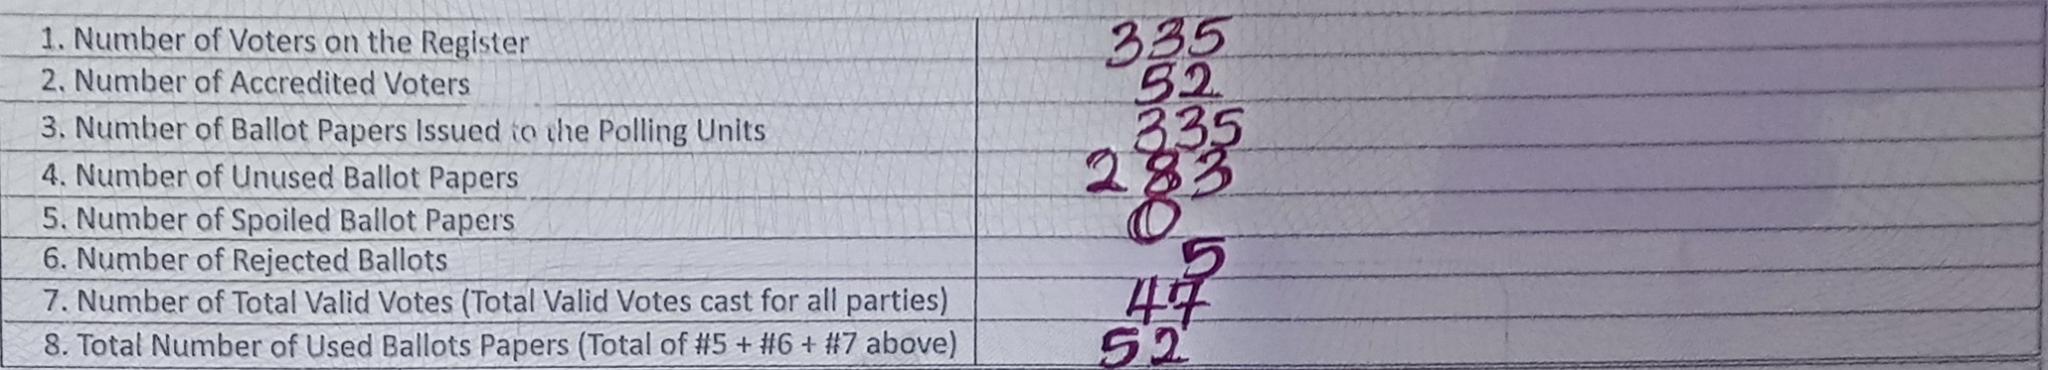 1. Number of Voters on the Register 335
2. Number of Accredited Voters 52
3. Number of Ballot Papers Issued to the Polling Units 335
4. Number of Unused Ballot Papers 283
5. Number of Spoiled Ballot Papers 0
6. Number of Rejected Ballots 5
7. Number of Total Valid Votes (Total Valid Votes cast for all parties) 47
8. Total Number of Used Ballots Papers (Total of #5 + #6 + #7 above) 52